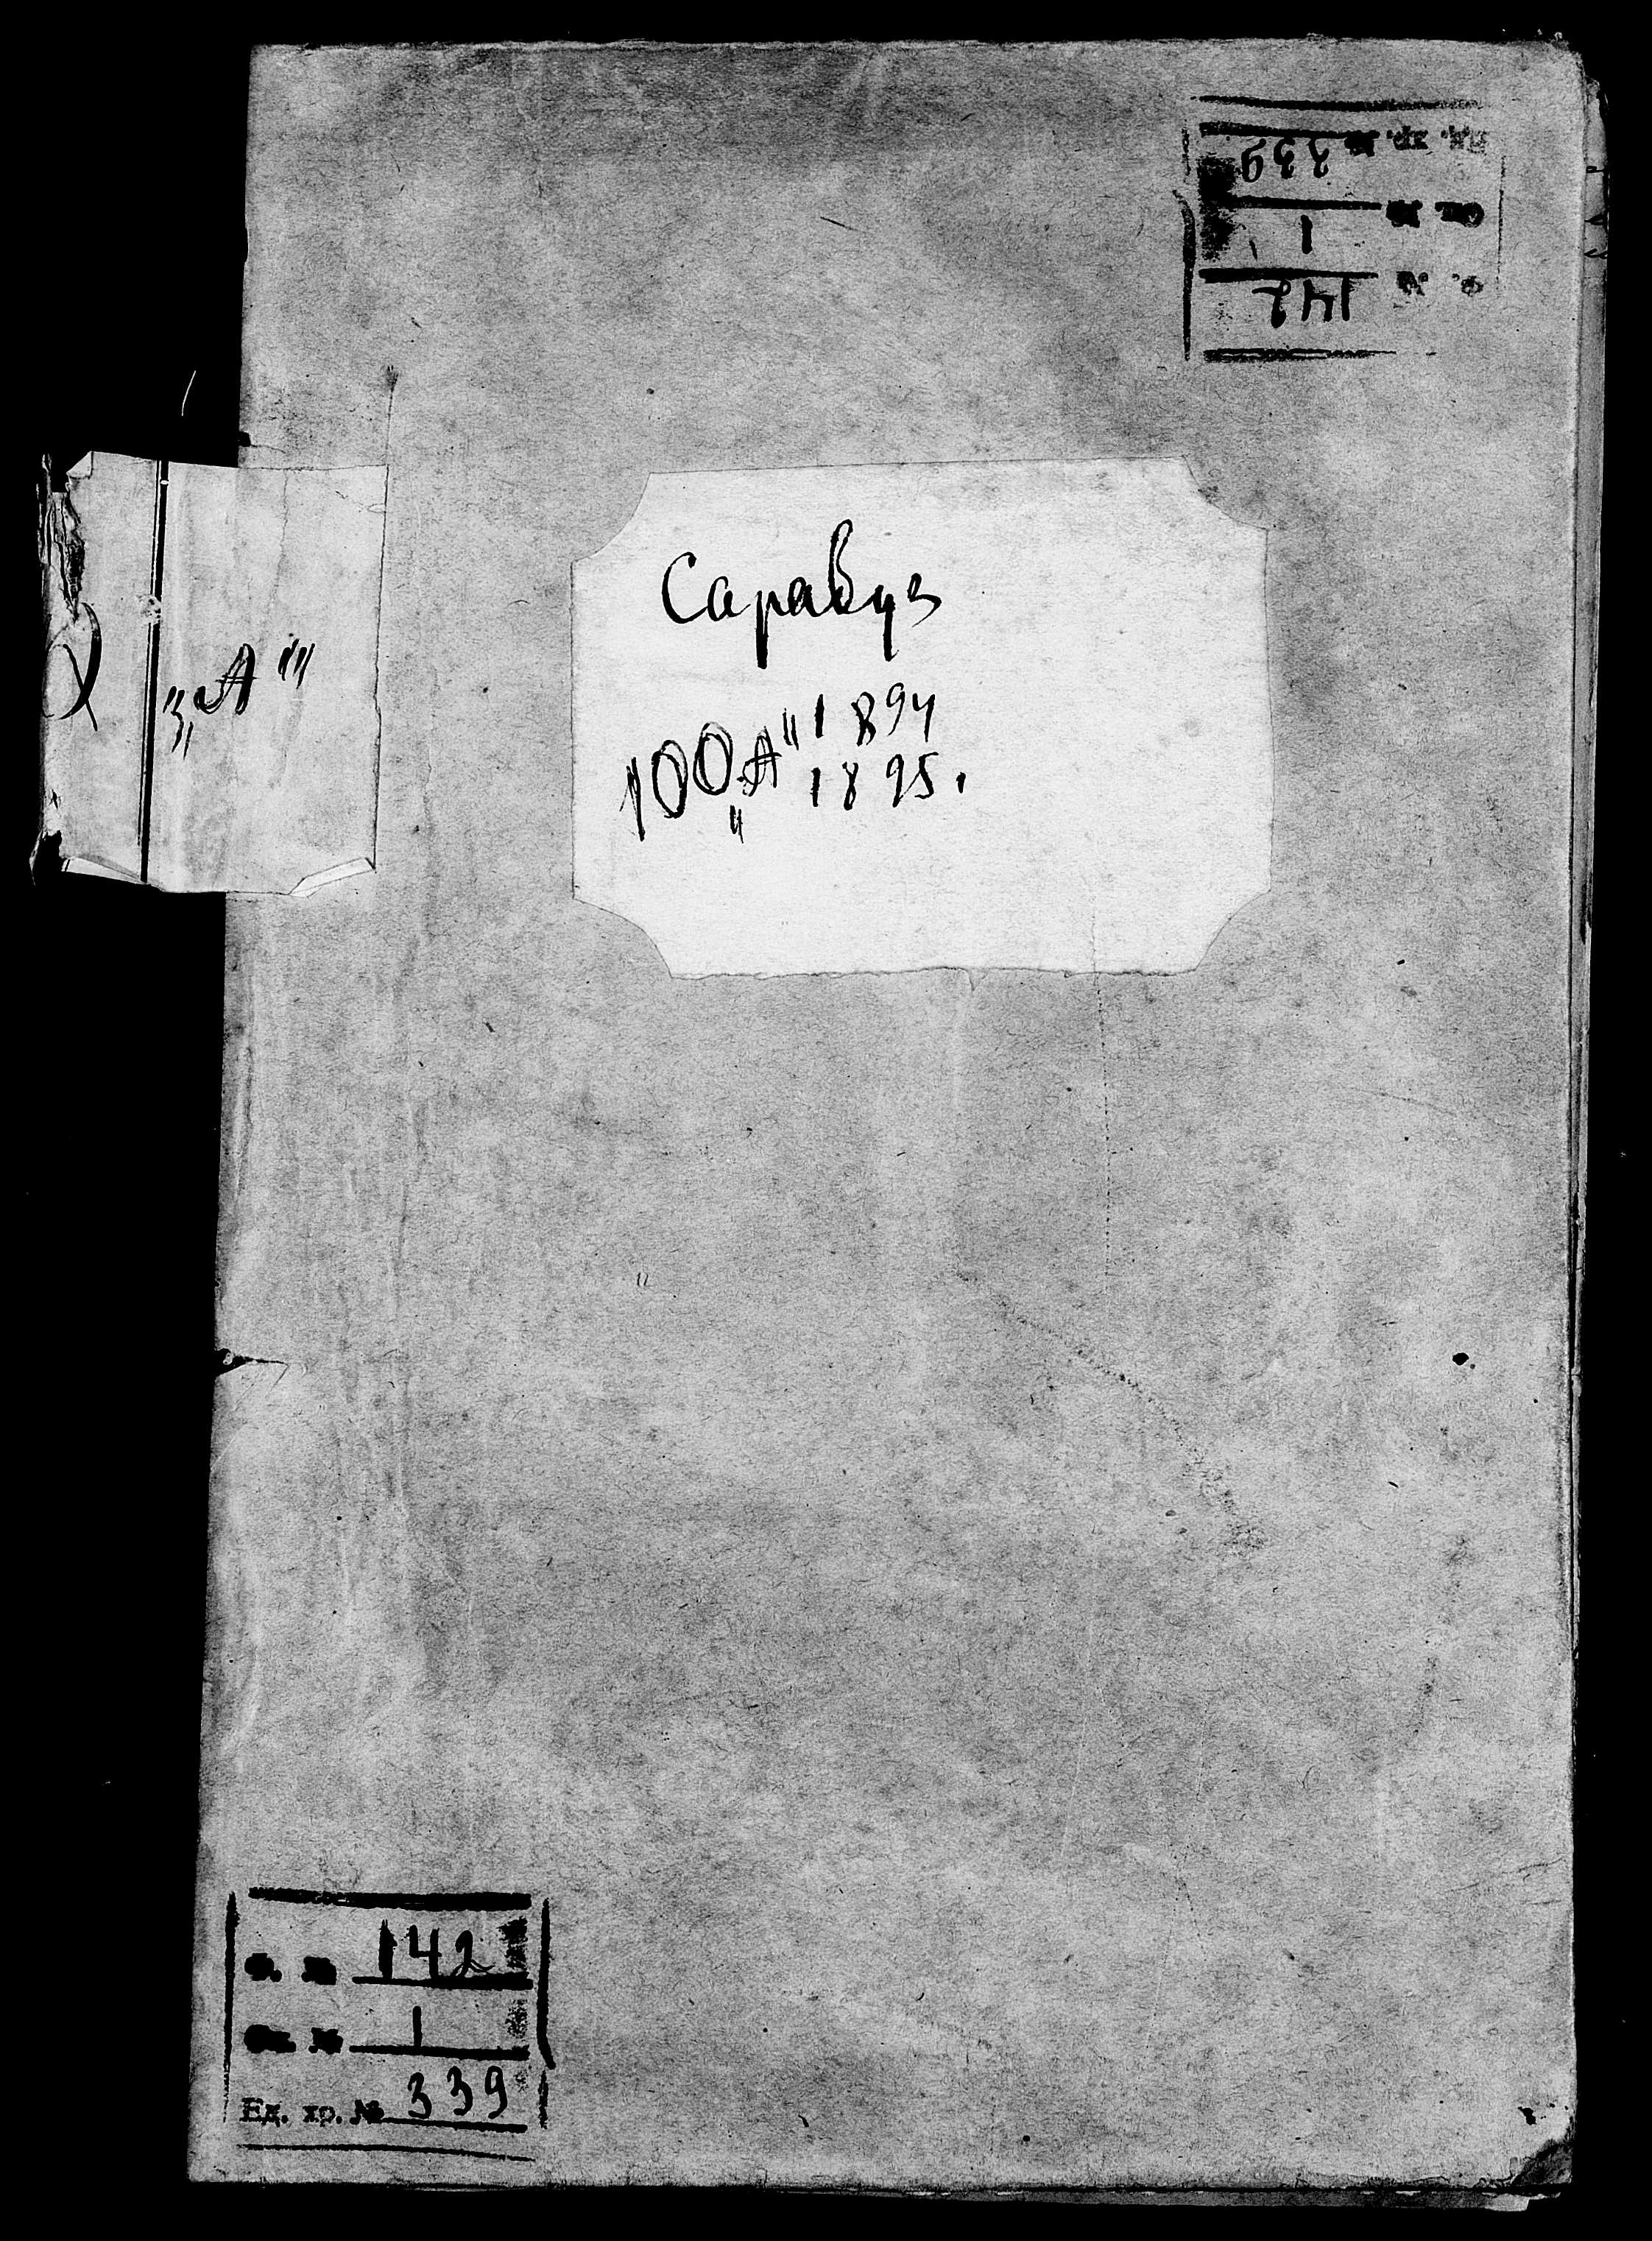 Ед. хр. № 339
Оп. № 1
Ф. № 142
„А“
Сарабуз
1894
100 „А“ 1895.
Ф. № 142
Оп. № 1
Ед. хр. № 339